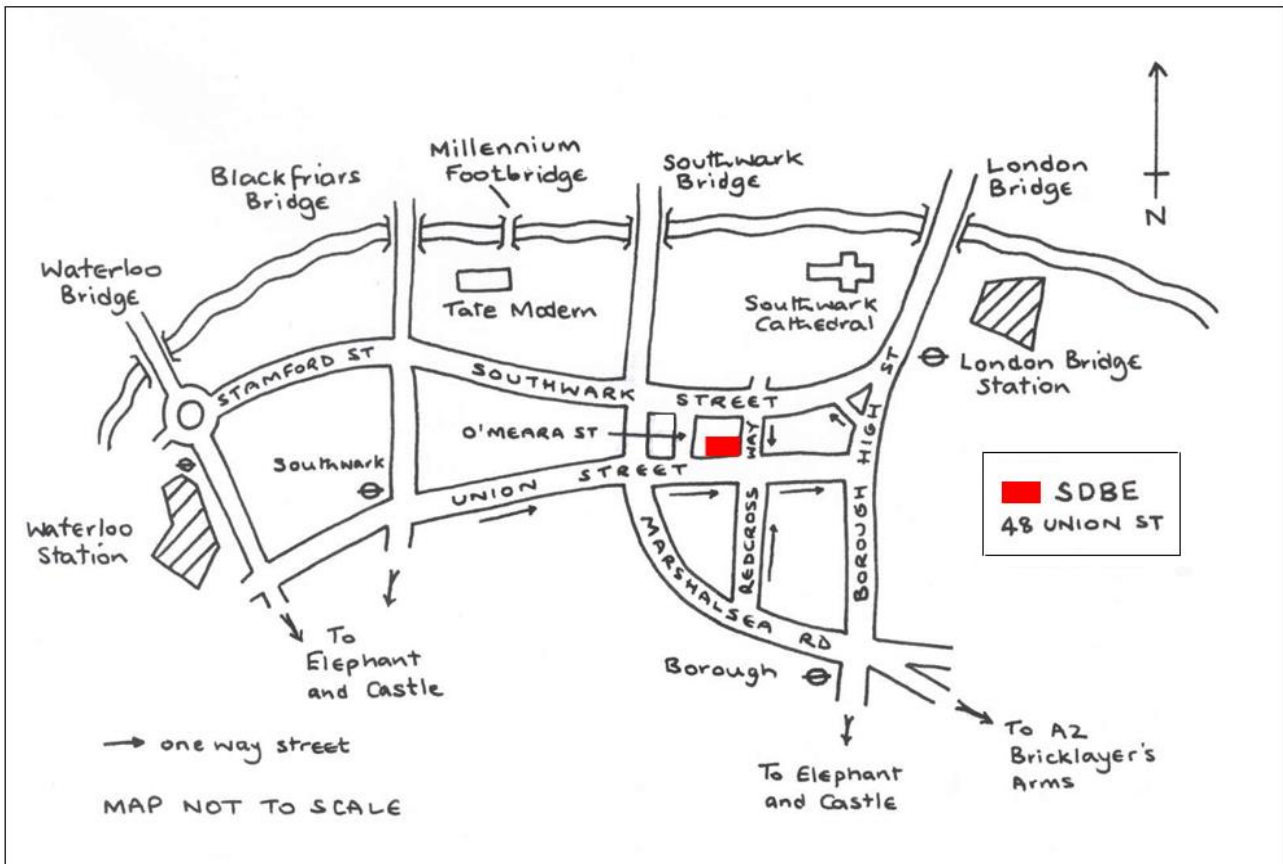 Blackfriars
Bridge
Millennium
Footbridge
Southwark
Bridge
London
Bridge
N
Waterloo
Bridge
Tate Modern
Southwark
Cathedral
London Bridge
Station
STAMFORD ST
SOUTHWARK STREET
O'MEARA ST
Southwark
UNION STREET
REDCROSS WAY
BOROUGH HIGH ST
MARSHALSEA RD
Waterloo
Station
SDBE
48 UNION ST
Borough
To
Elephant
and Castle
To Elephant
and Castle
To A2
Bricklayer's
Arms
one way street
MAP NOT TO SCALE